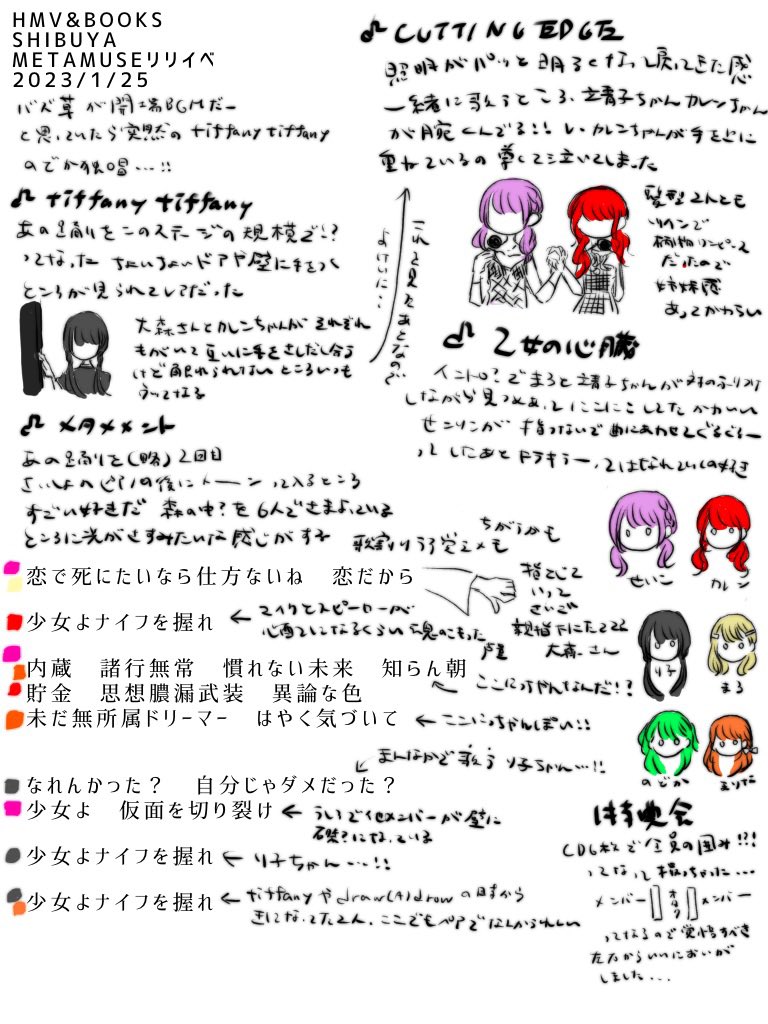 HMV&BOOKS
SHIBUYA
METAMUSEリリイベ
2023/1/25
バズ草が開場BGMだー
と思っていたら突然のtiffany tiffany
のどか独唱…!!
tiffany tiffany
あの踊りをこのステージの規模で!?
ってなった ちょいちょいドアや壁に手をつく
ところが見られてレアだった
大森さんとカレンちゃんがそれぞれ
もがいて互いに手をさしだし合う
けど触れられないところいつも
うってなる
これを見たあとなので
よけいに…
メタメメント
あの踊りを(略)2回目
さいしょのピアノの後にトーンって入るところ
すごい好きだ 森の中?を6人でさまよっている
ところに光がさすみたいな感じがする
歌割りうろ覚えメモ
ちがうかも
恋で死にたいなら仕方ないね 恋だから
指とじて
いって
さいご
親指下にたてる
大森さん
少女よナイフを握れ
マイクとスピーカーが
心配になるくらい魂のこもった
声量
内蔵 諸行無常 慣れない未来 知らん朝
貯金 思想膿漏武装 異論な色
ここにっちゃんなんだ!?
未だ無所属ドリーマー はやく気づいて
ここにっちゃんぽい!!
まんなかで歌うり子ちゃん…!!
なれんかった? 自分じゃダメだった?
少女よ 仮面を切り裂け
うしろで他メンバーが壁に
磔?になっている
少女よナイフを握れ
り子ちゃん…!!
少女よナイフを握れ
tiffanyやdraw(A)drowの時から
きになってた2人、ここでもペアでなんかうれしい
CUTTING EDGE
照明がパッと明るくなって戻ってきた感
一緒に歌うところ、靖子ちゃんカレンちゃん
が腕くんでる!! レ、カレンちゃんが手をさらに
重ねているの尊くて泣いてしまった
髪型2人とも
ツインで
柄物ワンピース
だったので
姉妹感
あってかわいい
乙女の心臓
イントロ?でまると靖子ちゃんが対のふりつけ
しながら見つめあってにこにこしてた かわいい
センリンが指つないで曲にあわせてぐるぐるー
ってしたあとドラキラー、ってはなれていくの好き
せいこ
カレン
り子
まる
のどか
まりな
特典会
CD6枚で全員の囲み!!!
ってなって撮っちゃった…
メンバー
オタク
メンバー
ってなるので覚悟すべき
左右からいいにおいが
しました…